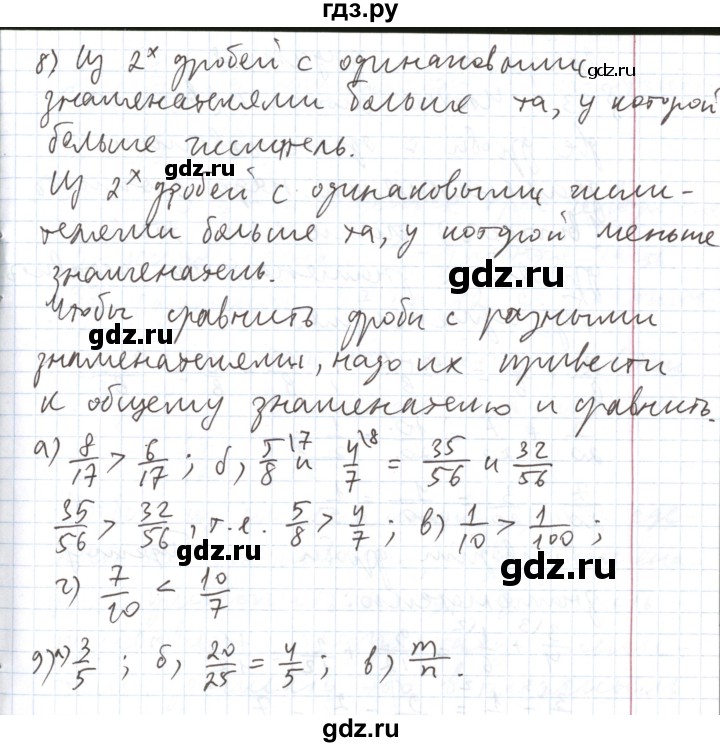 гдз.ру
8) Из 2х дробей с одинаковыми
знаменателями больше та, у которой
больше числитель.
gdz.ru
Из 2х дробей с одинаковыми числи-
телями больше та, у которой меньше
знаменатель.
gdz.ru
Чтобы сравнить дроби с разными
gdz.ru
знаменателями, надо их привести
к общему знаменателю и сравнить.
а) 8/17 > 6/17 ; б) 5/8 \7 и 4/7 \8 = 35/56 и 32/56
35/56 > 32/56 , т.е. 5/8 > 4/7 ; в) 1/10 > 1/100 ;
gdz.ru
gdz.ru
г) 7/10 < 10/7
9) а) 3/5 ; б) 20/25 = 4/5 ; в) m/n .
gdz.ru
gdz.ru
gdz.ru